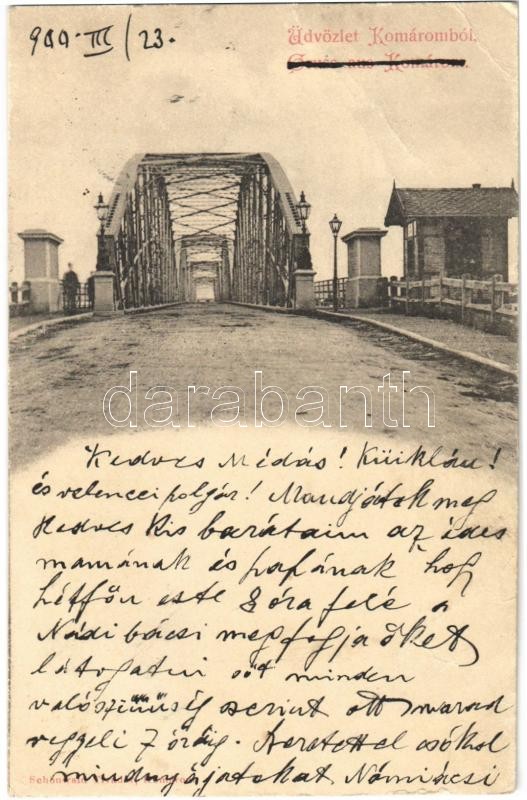 900. III / 23.
Üdvözlet Komáromból.
Gruss aus Komárom.
darabanth
Kedves Médás! Küiklán!
és velenceipolgár! Mondjátok meg
Kedves Kis barátaim az édes
mamának és papának hogy
hétfőn este 8 óra felé a
Nádi bácsi megfogja őket
látogatni sőt minden
valószínűség szerint ott marad
reggeli 7 óráig. Szeretettel csókol
mindnyájatokat